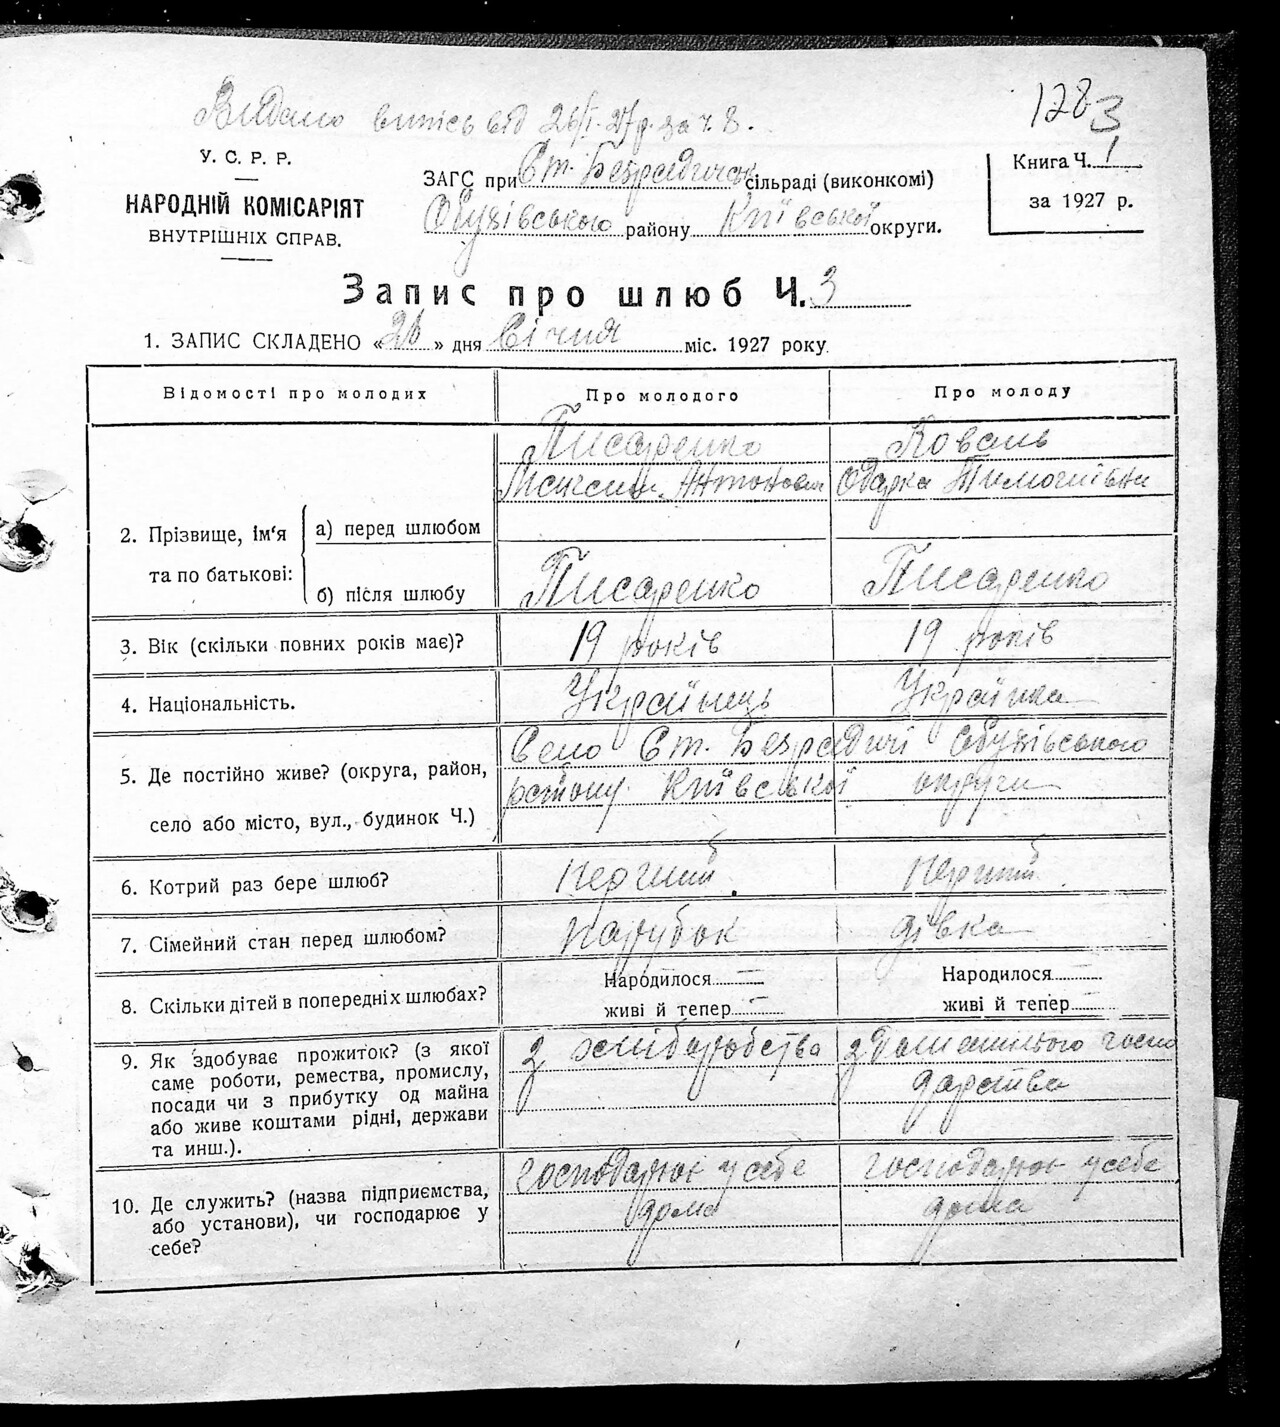 Видано випись від 26/I. 27 р. за ч. 8.
128
3
У. С. Р. Р.
НАРОДНІЙ КОМІСАРІЯТ
ВНУТРІШНІХ СПРАВ.
ЗАГС при Ст. Безрадичськ сільраді (виконкомі)
Обухівського району Київської округи.
Книга Ч. 1
за 1927 р.
Запис про шлюб Ч. 3
1. ЗАПИС СКЛАДЕНО «26» дня Січня міс. 1927 року.
Відомості про молодих
Про молодого
Про молоду
2. Прізвище, ім'я та по батькові:
а) перед шлюбом
Писаренко
Максим Антонович
Коваль
Одарка Тимофіївна
б) після шлюбу
Писаренко
Писаренко
3. Вік (скільки повних років має)?
19 років
19 років
4. Національність.
Українець
Українка
5. Де постійно живе? (округа, район,
село або місто, вул., будинок Ч.)
Село Ст. Безрадичі Обухівського
району Київської округи
6. Котрий раз бере шлюб?
перший
перший
7. Сімейний стан перед шлюбом?
парубок
дівка
8. Скільки дітей в попередніх шлюбах?
Народилося —
живі й тепер —
Народилося —
живі й тепер —
9. Як здобуває прожиток? (з якої
саме роботи, ремества, промислу,
посади чи з прибутку од майна
або живе коштами рідні, держави
та инш.).
з хліборобства
з домашнього госпо
дарства
10. Де служить? (назва підприємства,
або установи), чи господарює у
себе?
господарює у себе
дома
господарює у себе
дома